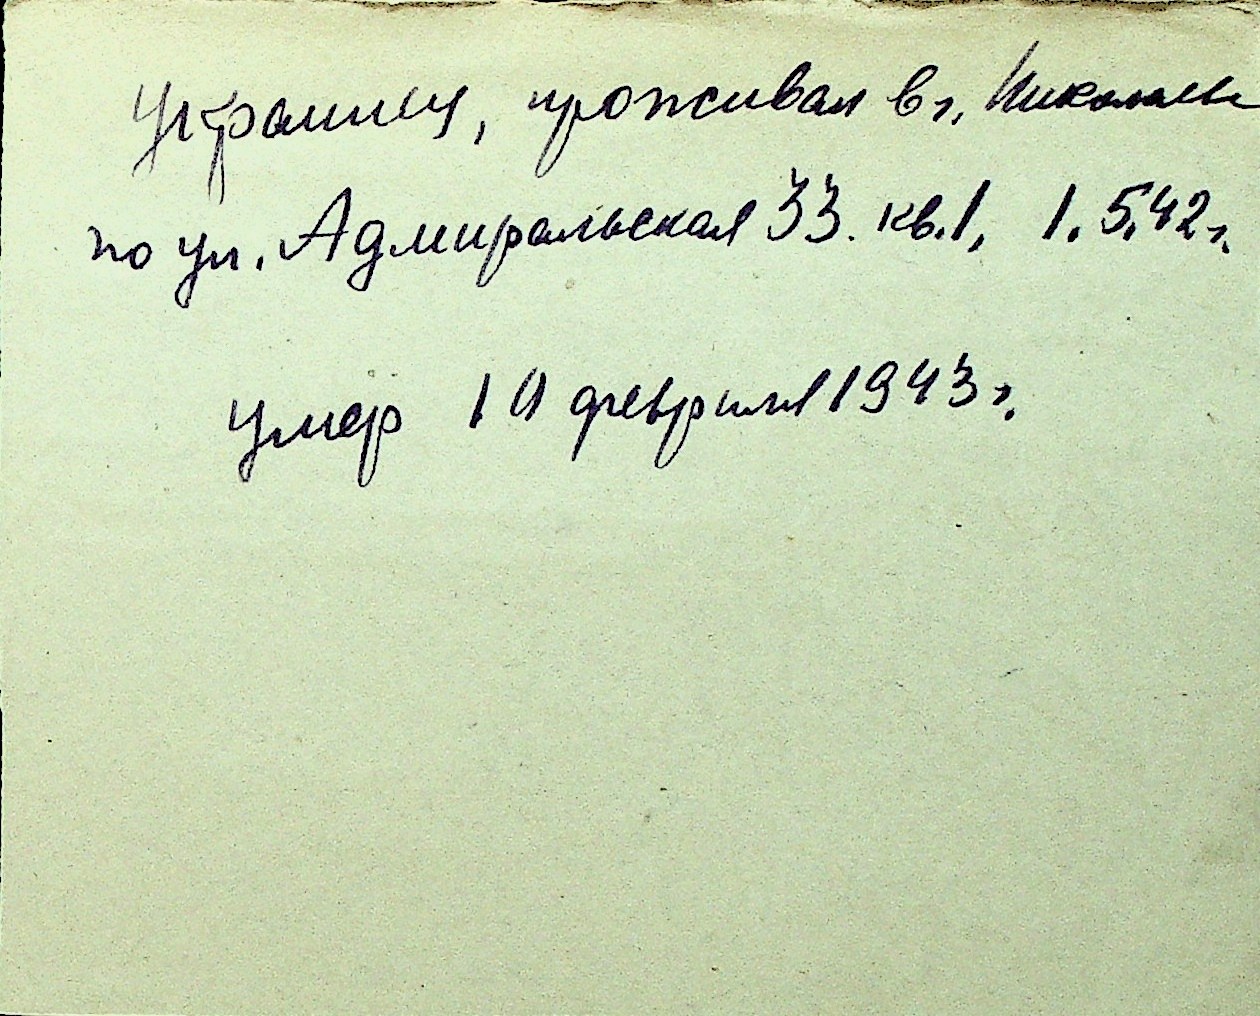 Украинец, проживал в г. Николаеве
по ул. Адмиральская 33. кв. 1, 1.5.42 г.
умер 10 февраля 1943 г.